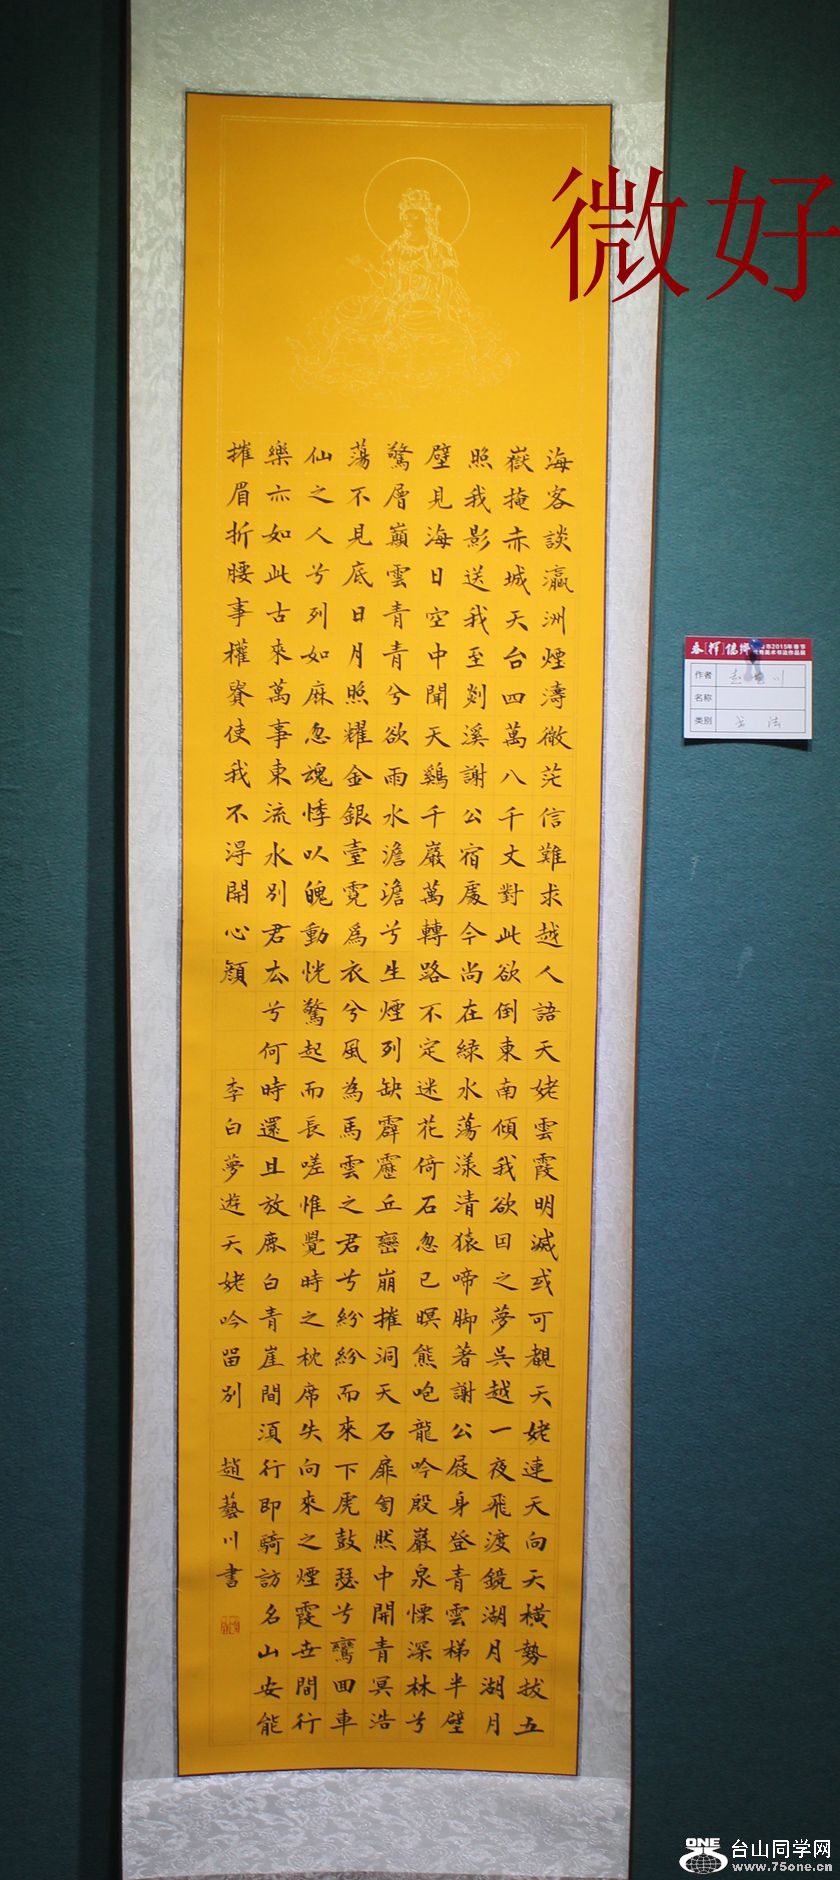 微好
海客談瀛洲煙濤微茫信難求越人語天姥雲霞明滅或可覩天姥連天向天橫勢拔五
嶽掩赤城天台四萬八千丈對此欲倒東南傾我欲因之夢吳越一夜飛渡鏡湖月湖月
照我影送我至剡溪謝公宿處今尚在綠水蕩漾清猿啼脚著謝公屐身登青雲梯半壁
壁見海日空中聞天鷄千巖萬轉路不定迷花倚石忽已暝熊咆龍吟殷巖泉慄深林兮
驚層巔雲青青兮欲雨水澹澹兮生煙列缺霹靂丘巒崩摧洞天石扉訇然中開青冥浩
蕩不見底日月照耀金銀臺霓爲衣兮風為馬雲之君兮紛紛而來下虎鼓瑟兮鸞回車
仙之人兮列如麻忽魂悸以魄動恍驚起而長嗟惟覺時之枕席失向來之煙霞世間行
樂亦如此古來萬事東流水別君去兮何時還且放鹿白青崖間須行即騎訪名山安能
摧眉折腰事權貴使我不得開心顏 李白夢遊天姥吟留別 趙藝川書
市2015年春节
美术书法作品展
作者 川
名称
类别 书法
ONE 台山同学网
www.75one.cn